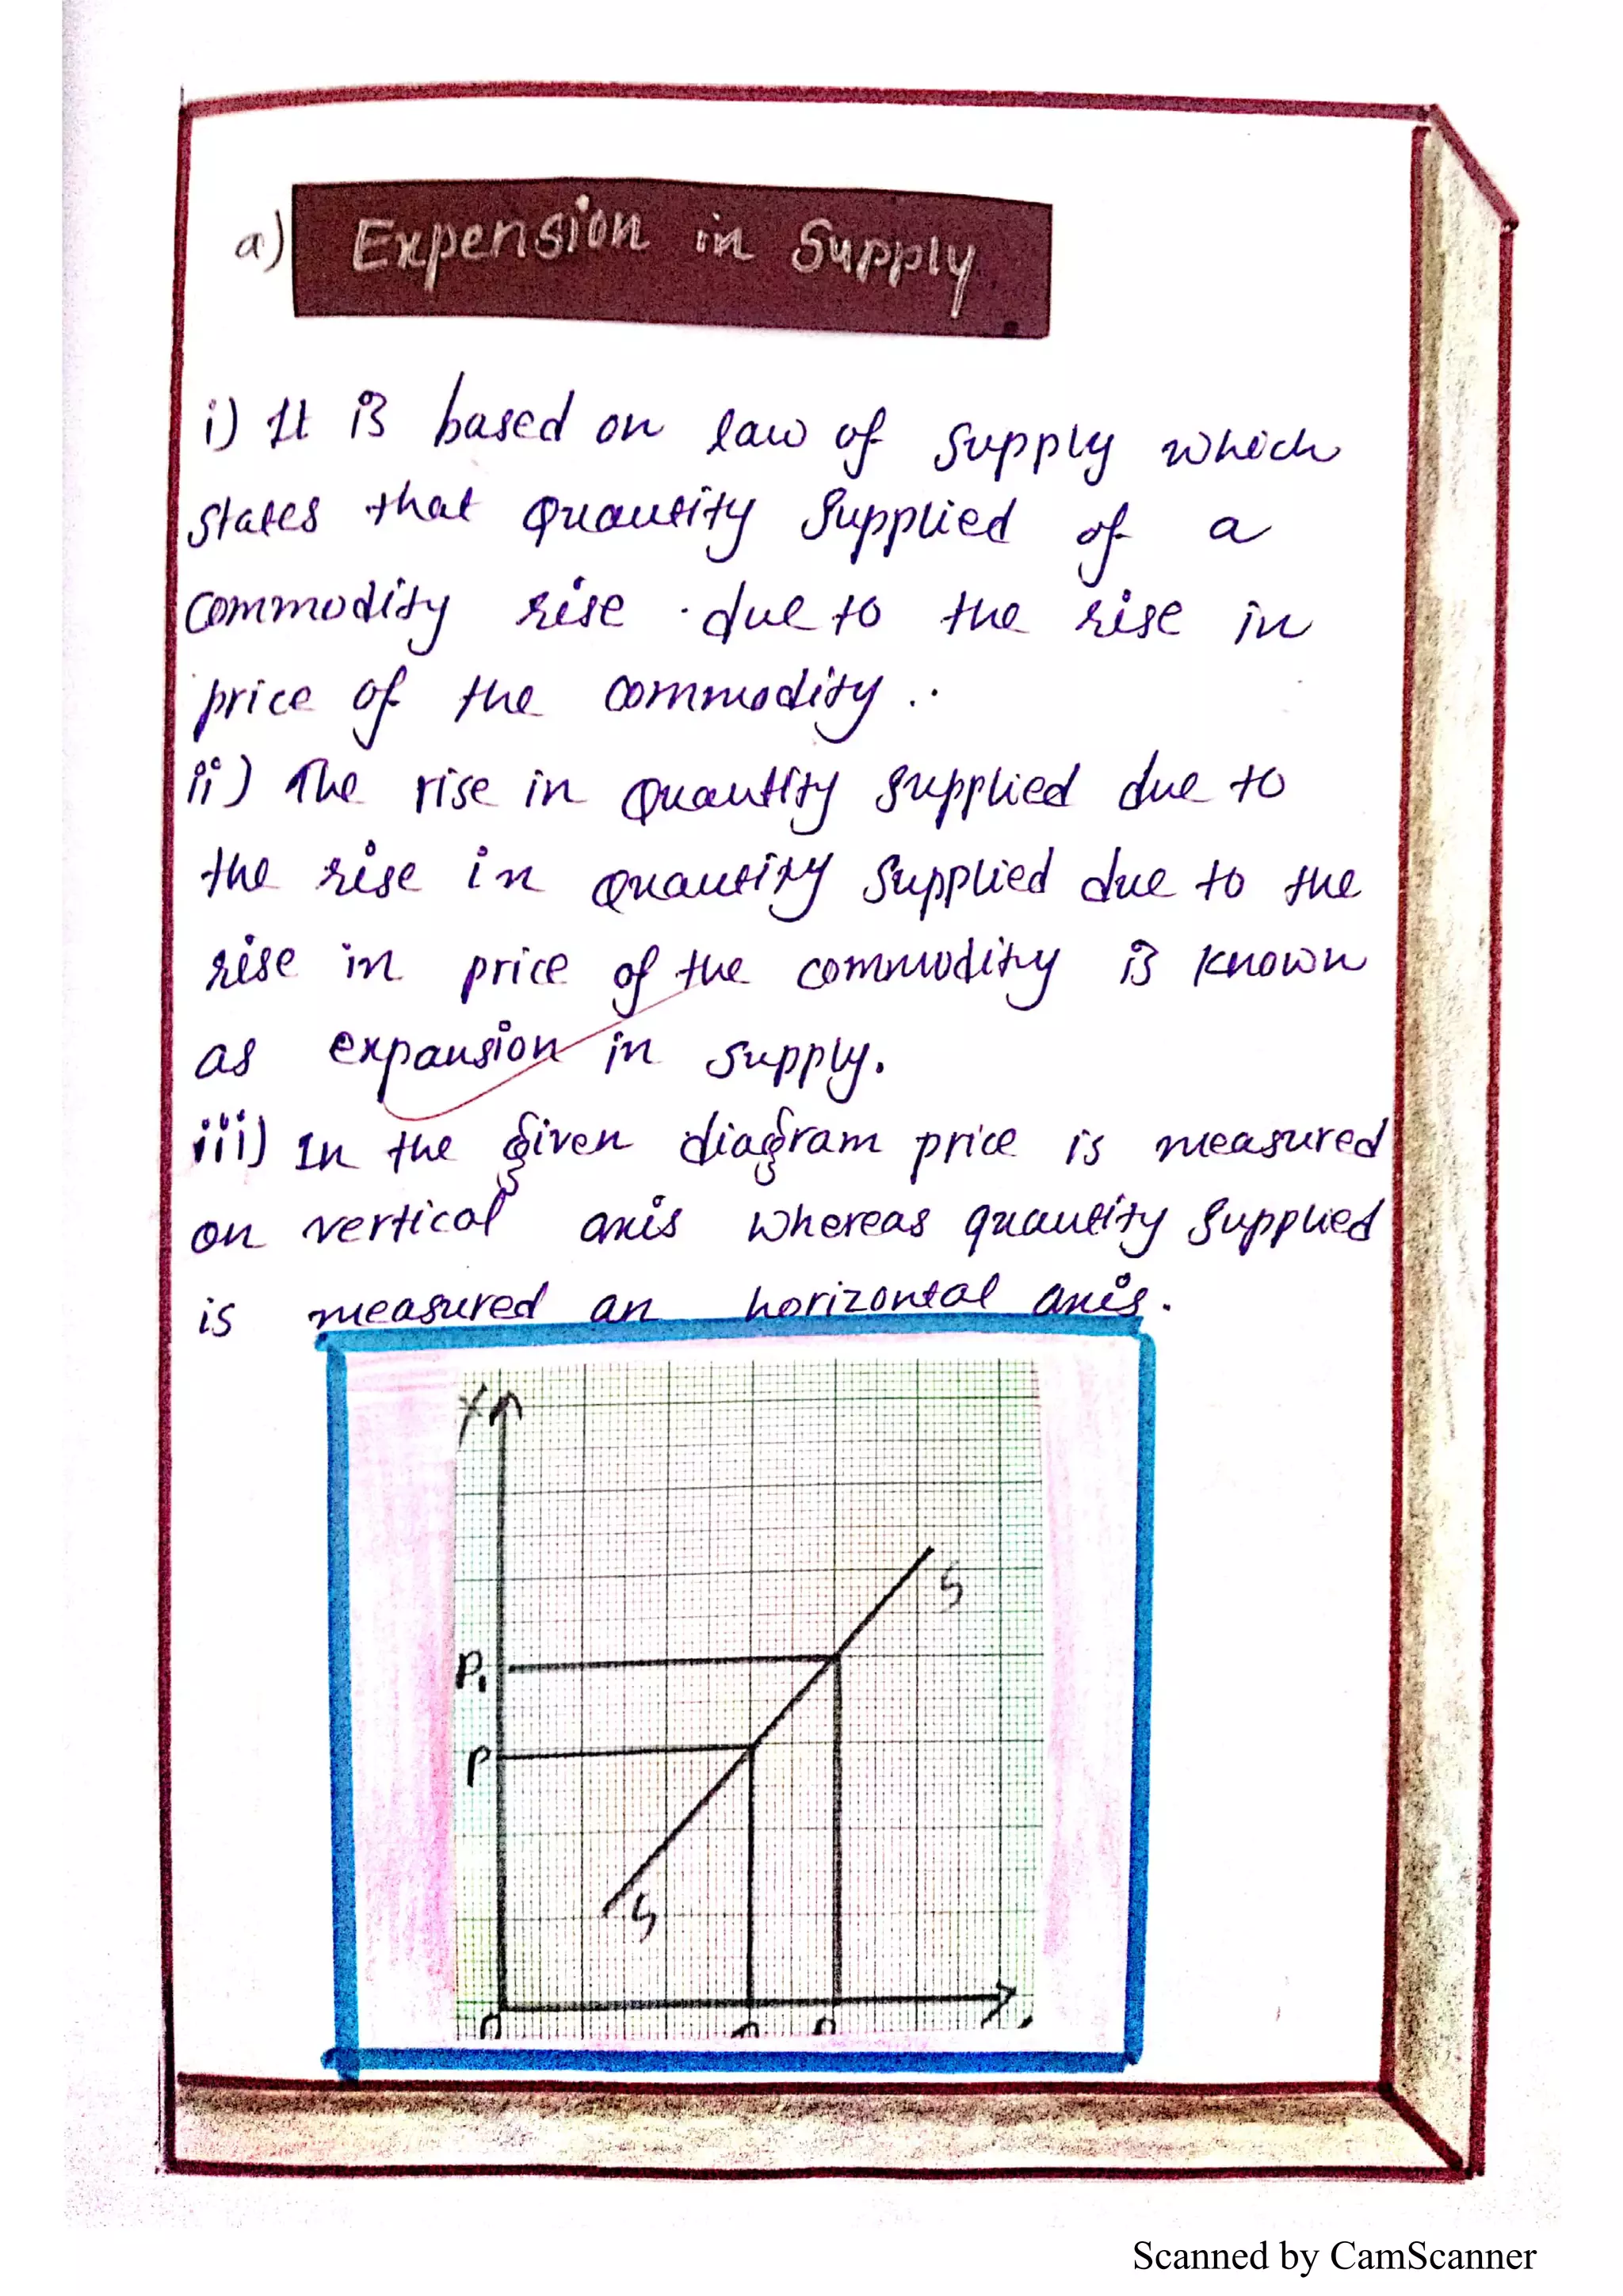 a) Expension in Supply
i) It is based on law of supply which
states that quantity supplied of a
commodity rise due to the rise in
price of the commodity.
ii) The rise in quantity supplied due to
the rise in quantity supplied due to the
rise in price of the commodity is known
as expansion in supply.
iii) In the given diagram price is measured
on vertical axis whereas quantity supplied
is measured an horizontal axis.
Y
S
P1
P
S
Scanned by CamScanner